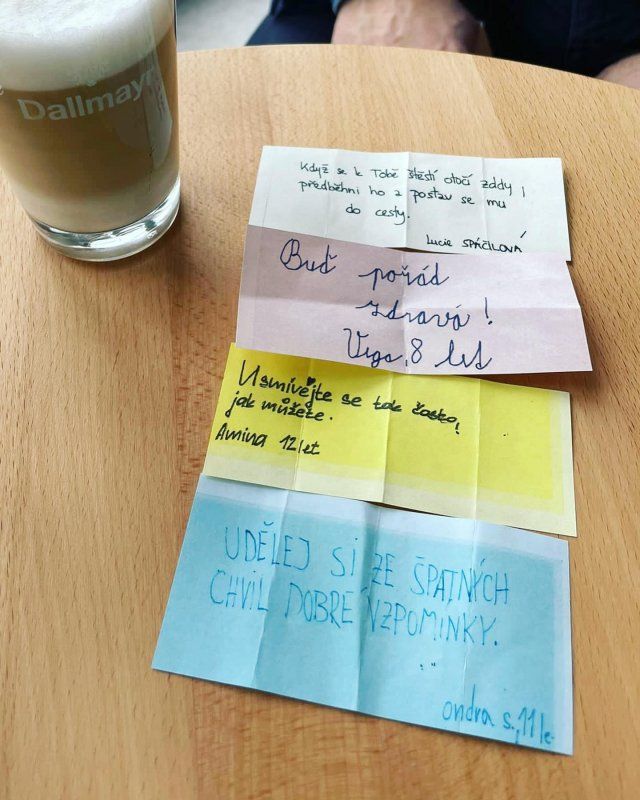 Dallmayr
Když se k Tobě štěstí otočí zády,
předběhni ho a postav se mu
do cesty.
Lucie SPÁČILOVÁ
Buď pořád
zdravá!
8 let
Usmívejte se tak často,
jak můžete.
Amina 12 let
UDĚLEJ SI ZE ŠPATNÝCH
CHVIL DOBRÉ VZPOMINKY.
ondra s., 11 le